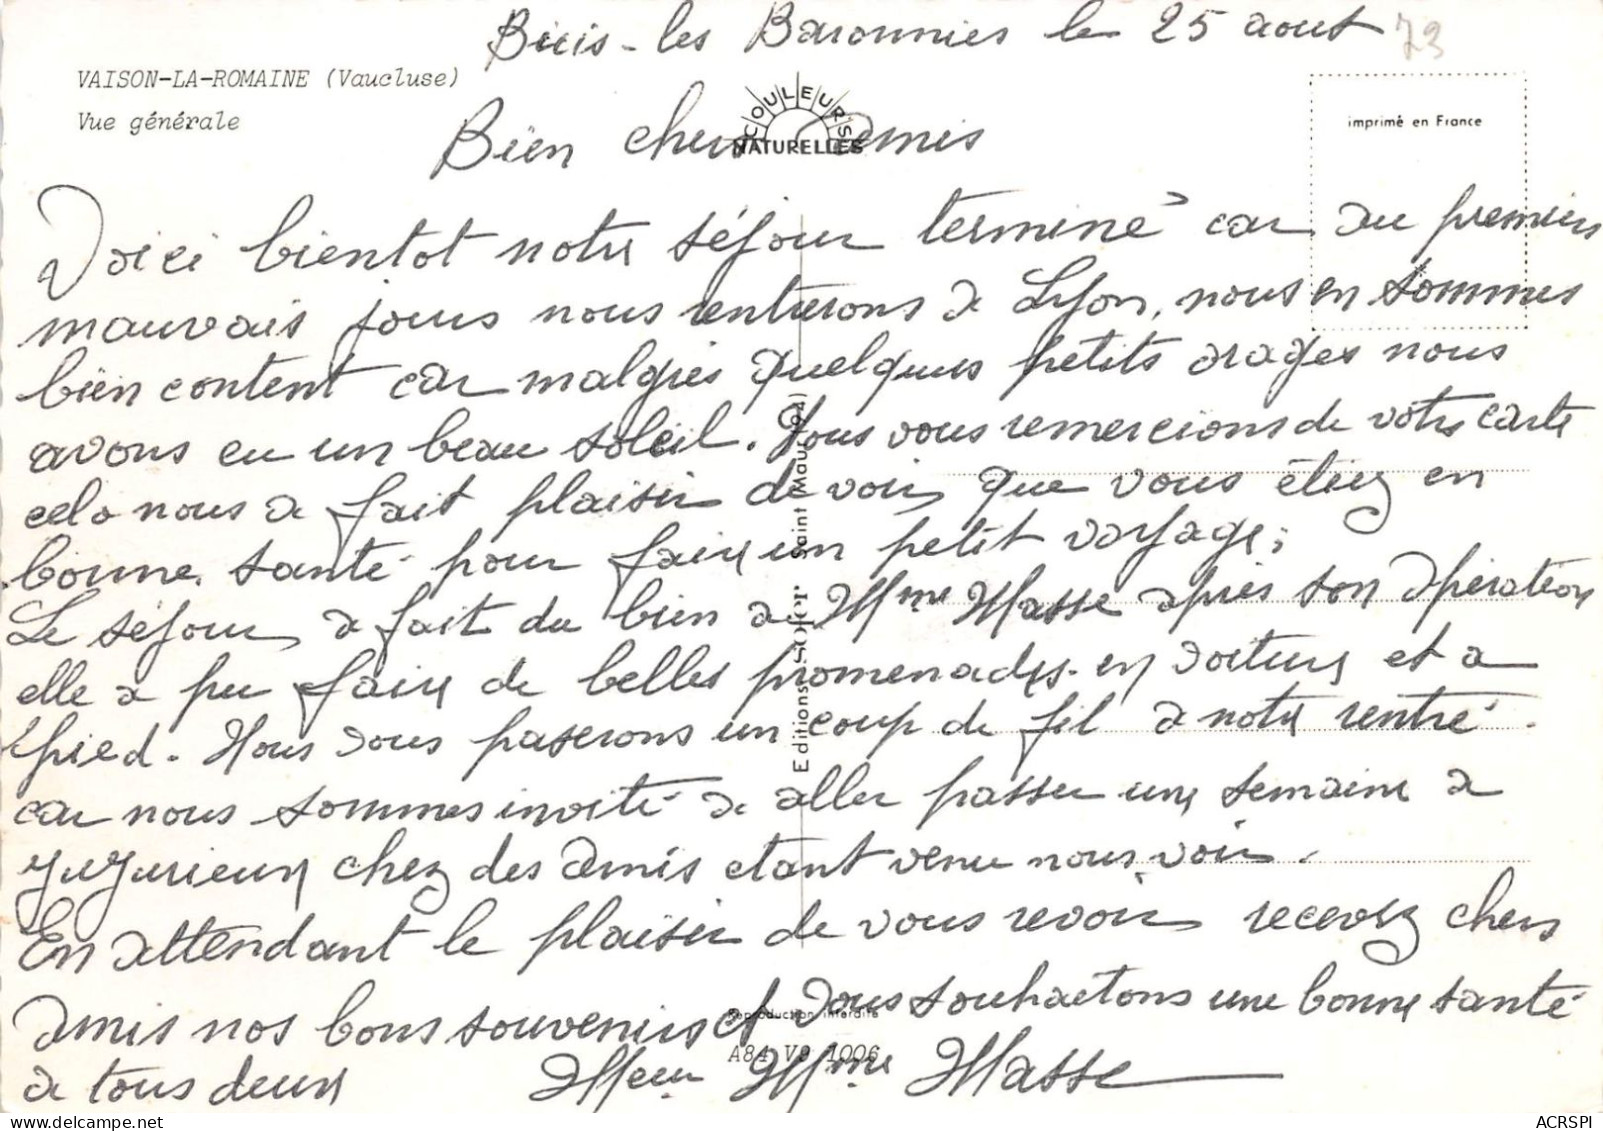 Buis-les Baronnies le 25 aout 73
VAISON-LA-ROMAINE (Vaucluse)
Vue générale
COULEURS
NATURELLES
imprimé en France
Bien chers Amis
Voici bientot notre séjour terminé car au premiers
mauvais jours nous rentrerons à Lyon, nous en sommes
bien content car malgrés quelques petits orages nous
avons eu un beau soleil. Nous vous remercions de votre carte
cela nous a fait plaisir de voir que vous étiez en
bonne santé pour faire un petit voyage;
Le séjour a fait du bien a Mme Masse après son opération
elle a pu faire de belles promenades en voiture et a
pied. Nous vous passerons un coup de fil a notre rentré.
car nous sommes invité a aller passer une semaine a
Jujurieux chez des amis etant venu nous voir.
En attendant le plaisir de vous revoir recevez chers
Amis nos bons souvenirs et vous souhaitons une bonne santé
a tous deux Mr Mme Masse
Editions SOfer Saint Maur (94)
Reproduction interdite
A84 V9 1006
ACRSPI